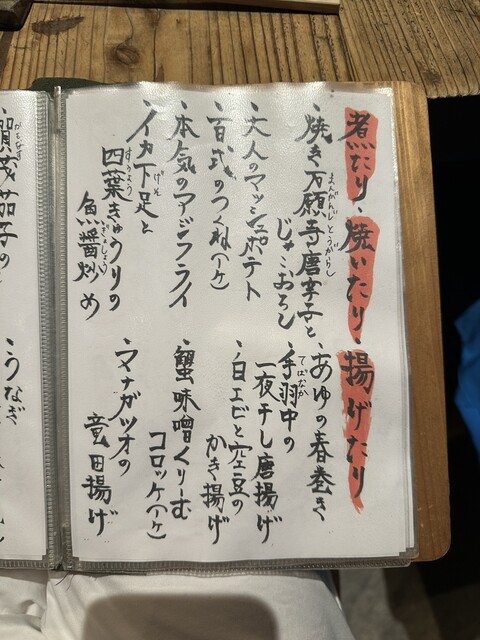 煮たり、焼いたり、揚げたり
、焼き万願寺唐辛子と
まんがんじとうがらし
じゃこおろし
、大人のマッシュポテト
、百式のつくね(1ヶ)
、本気のアジフライ
、イカ下足と
げそ
四葉きゅうりの
すうよう
魚醤炒め
ぎょしょう
、あゆの春巻き
、手羽中の
てばなか
一夜干し唐揚げ
、白エビと空豆の
かき揚げ
、蟹味噌くりーむ
コロッケ(1ヶ)
、マナガツオの
竜田揚げ
賀茂茄子の
がもなす
、うなぎ